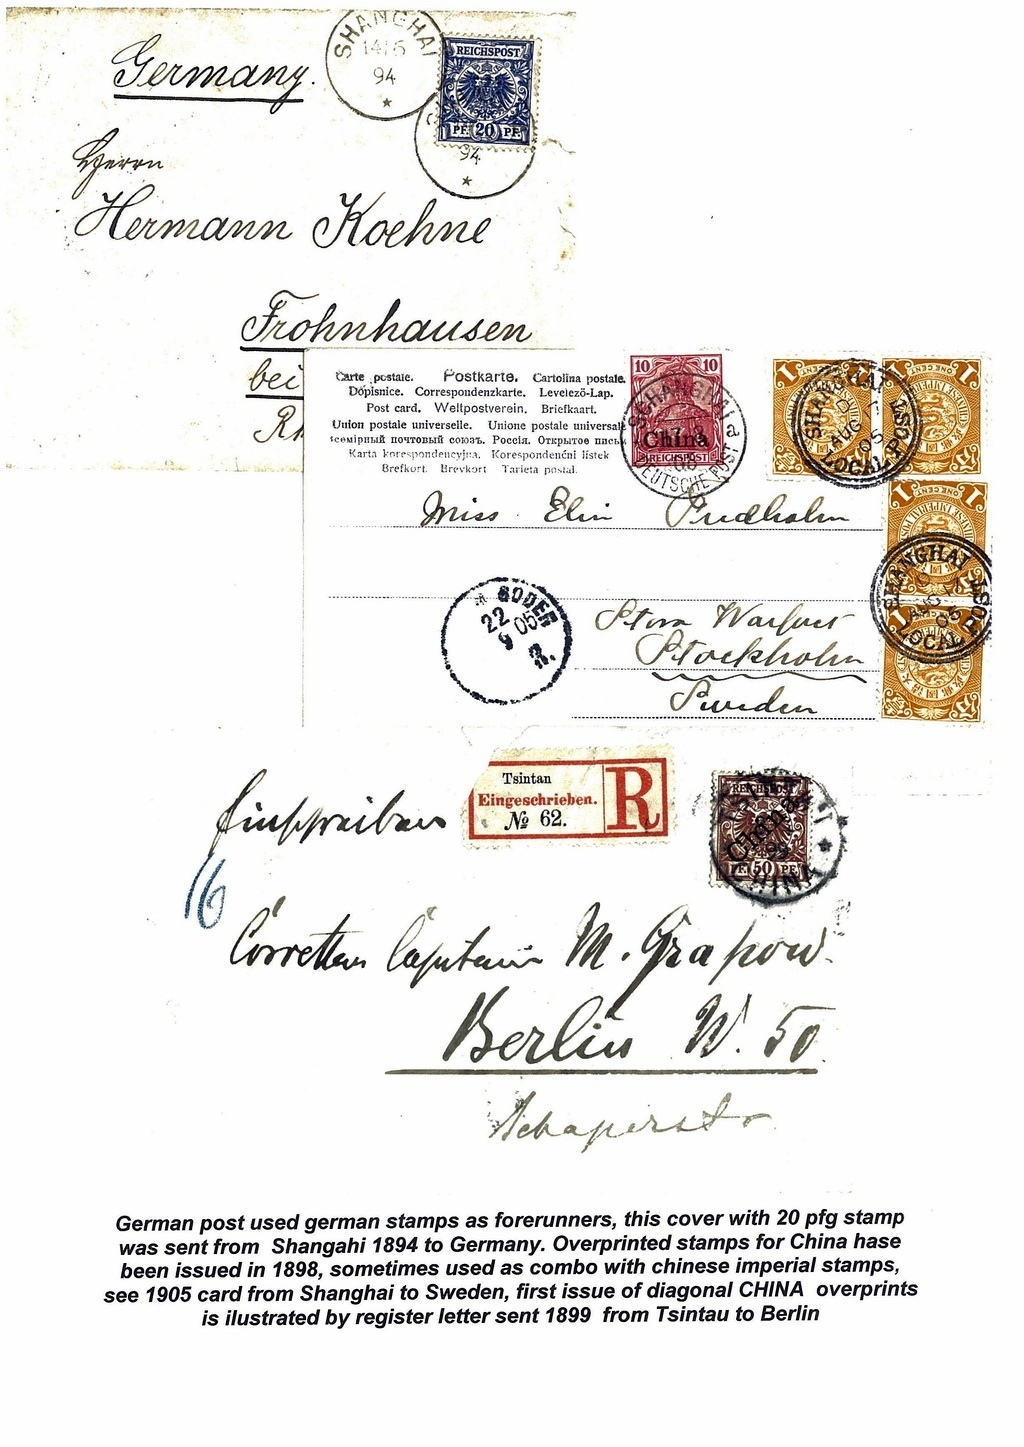 SHANGHAI
14/5
94
*
REICHSPOST
PF. 20 PF.
94
*
Germany.
Herrn
Hermann Koehne
Frohnhausen
bei
Carte postale. Postkarte. Cartolina postale.
Dopisnice. Correspondenzkarte. Levelező-Lap.
Post card. Weltpostverein. Briefkaart.
Union postale universelle. Unione postale universale
всемірный почтовый союзъ. Россія. Открытое
Karta korespondencyjna. Korespondenční lístek
Brefkort. Brevkort Tarjeta postal.
10 10
China
REICHSPOST
SCHANGHAI
DEUTSCHE POST
a
1 ONE CENT
1 ONE CENT
SHANGHAI
AUG
05
LOCAL POST
Miss Elin Fredholm
1 ONE CENT
SHANGHAI
AUG
05
LOCAL POST
1
BODEN
22
9 05
Stora
Stockholm
Sweden
Tsintau
Eingeschrieben.
№ 62.
R
Einschreiben
REICHSPOST
China
PF. 50 PF.
99
CHINA
16
Corvetten Capitain M. Grapow.
Berlin W. 50.
Schaperstr
German post used german stamps as forerunners, this cover with 20 pfg stamp
was sent from Shangahi 1894 to Germany. Overprinted stamps for China hase
been issued in 1898, sometimes used as combo with chinese imperial stamps,
see 1905 card from Shanghai to Sweden, first issue of diagonal CHINA overprints
is ilustrated by register letter sent 1899 from Tsintau to Berlin